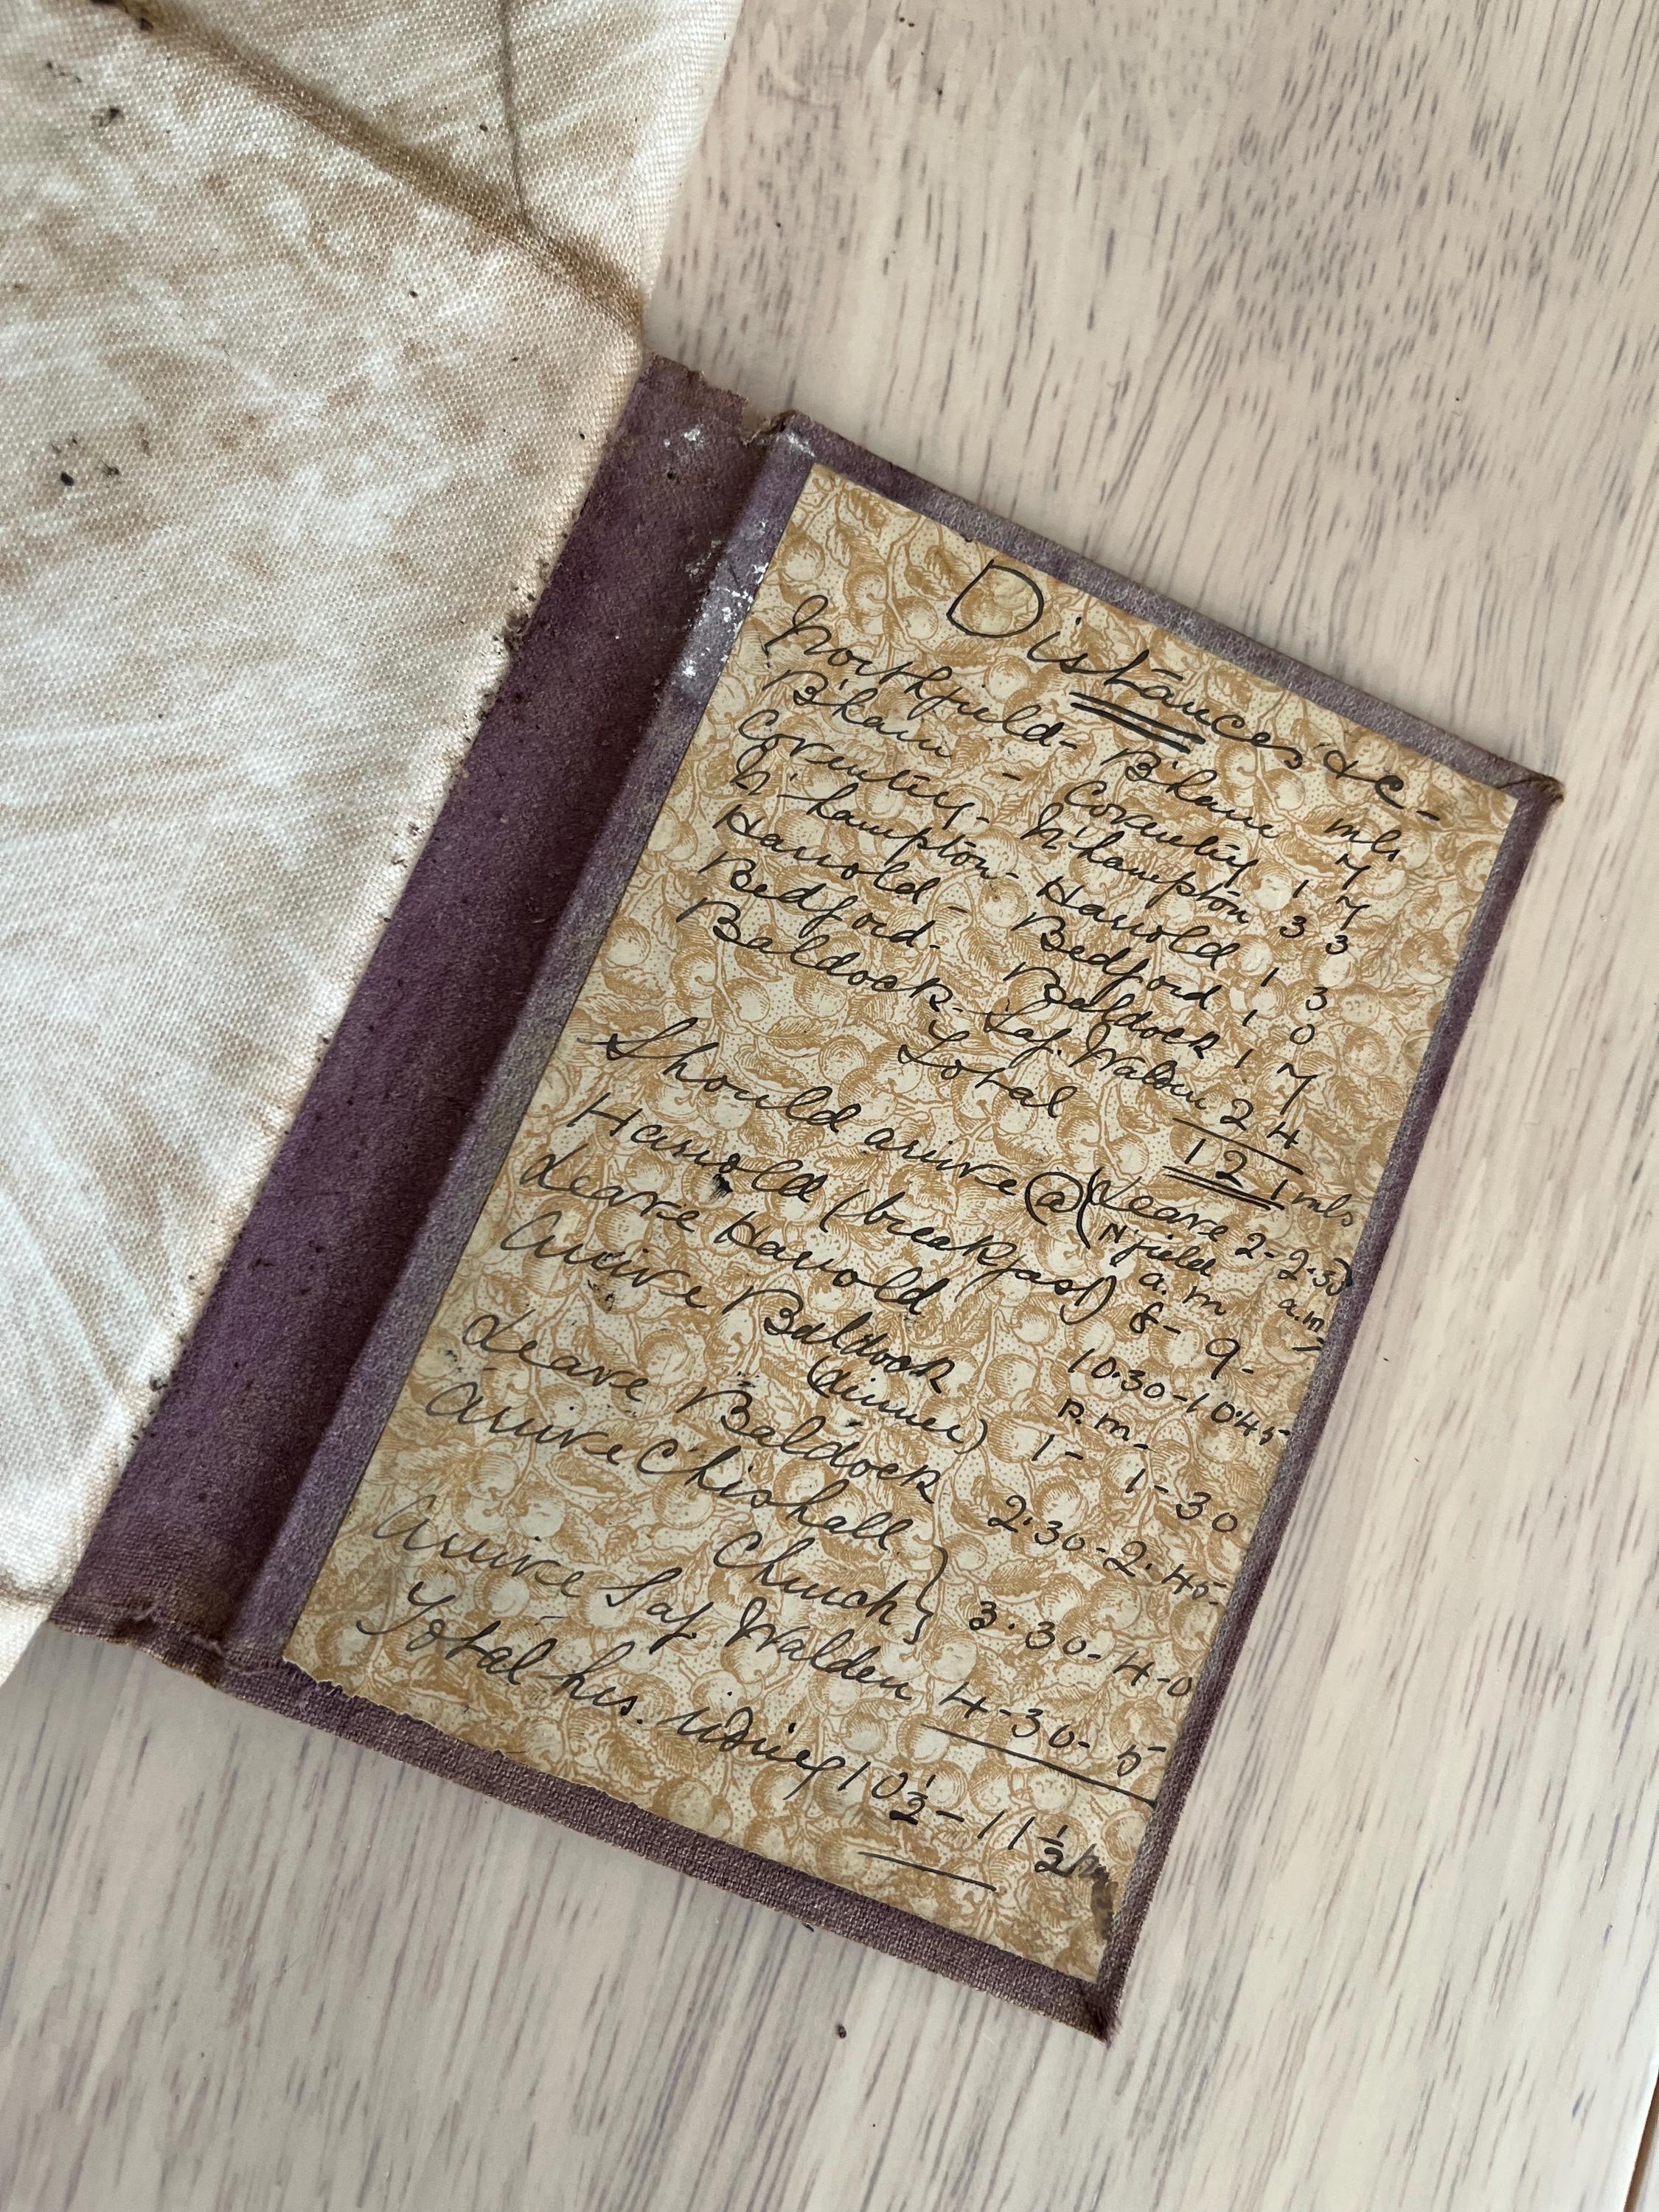 Distances &c-
mls
Northfield- B'ham 7
B'ham - Coventry 17
Coventry- N'hampton 33
N'hampton- Harrold 13
Harrold - Bedford 10
Bedford- Baldock 17
Baldock- Saf. Walden 24
Total 121 mls
Should arrive @ (Leave N'field 2-2.30 a.m.)
a.m
Harrold (breakfast) 8- 9-
Leave Harrold 10.30-10.45
p.m.
Arrive Baldock 1- 1-30
(dinner)
Leave Baldock 2.30-2.45-
Arrive Chishall
Church } 3.30-4-0
Arrive Saf. Walden 4-30- 5
Total hrs. riding 10½-11½h